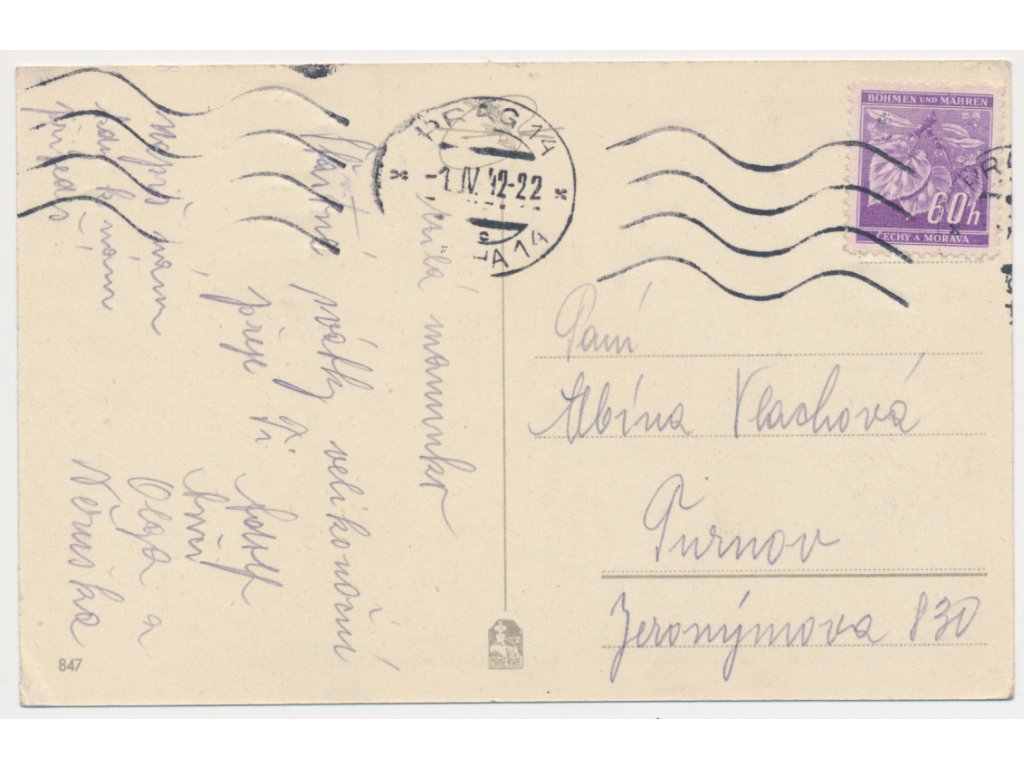 Milá maminko
Šťastné svátky velikonoční
přeje Ti Adolf
Olga a
Věruška
Napiš nám
kdy k nám
přijedeš
PRAG 14
-1.IV.42-22
PRAHA 14
BÖHMEN UND MÄHREN
60h
ČECHY A MORAVA
PRA
Paní
Albína Vlachová
Turnov
Jeronýmova 830
847
MINERVA